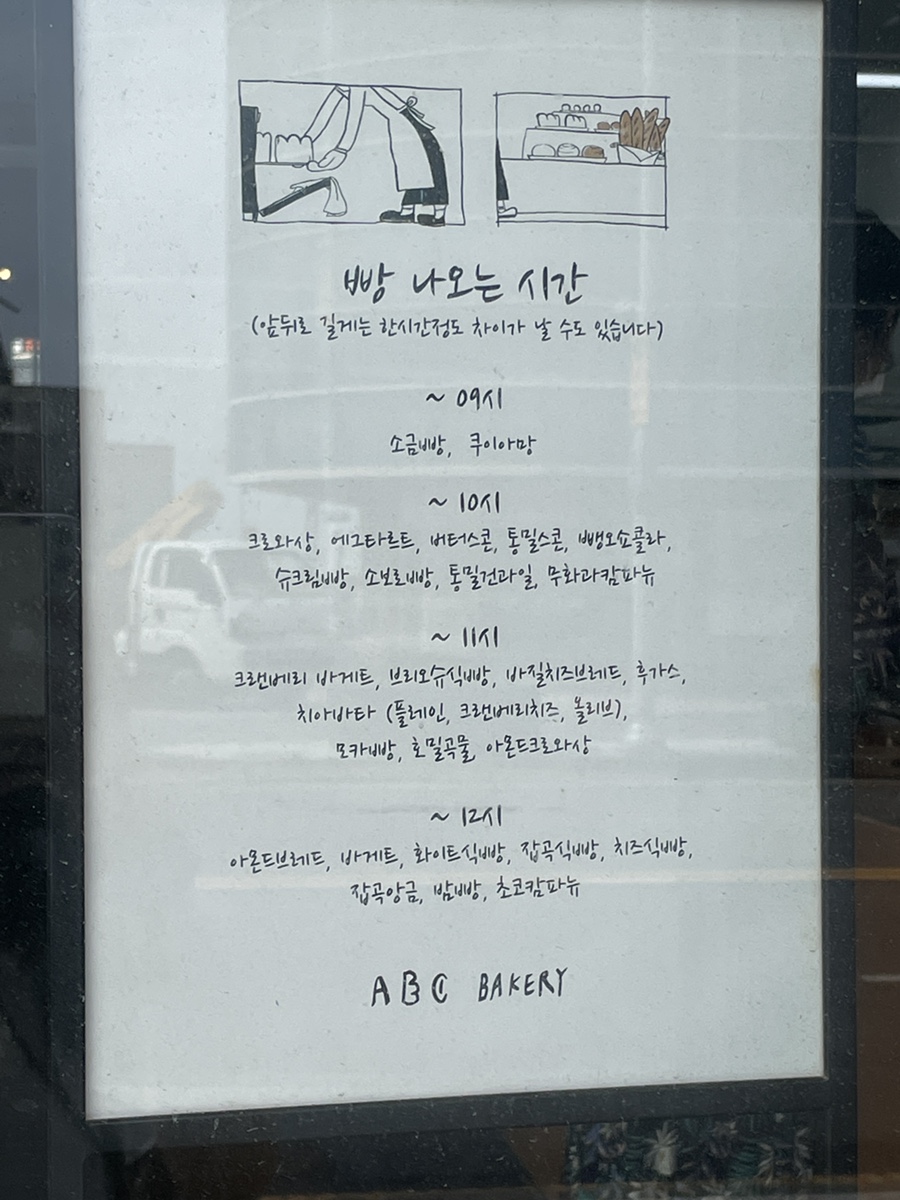 빵 나오는 시간
(앞뒤로 길게는 한시간정도 차이가 날 수도 있습니다)
~ 09시
소금빵, 쿠이아망
~ 10시
크로와상, 에그타르트, 버터스콘, 통밀스콘, 뺑오쇼콜라,
슈크림빵, 소보로빵, 통밀건과일, 무화과캄파뉴
~ 11시
크랜베리 바게트, 브리오슈식빵, 바질치즈브레드, 후가스,
치아바타 (플레인, 크랜베리치즈, 올리브),
모카빵, 호밀곡물, 아몬드크로와상
~ 12시
아몬드브레드, 바게트, 화이트식빵, 잡곡식빵, 치즈식빵,
잡곡앙금, 밤빵, 초코캄파뉴
ABC BAKERY